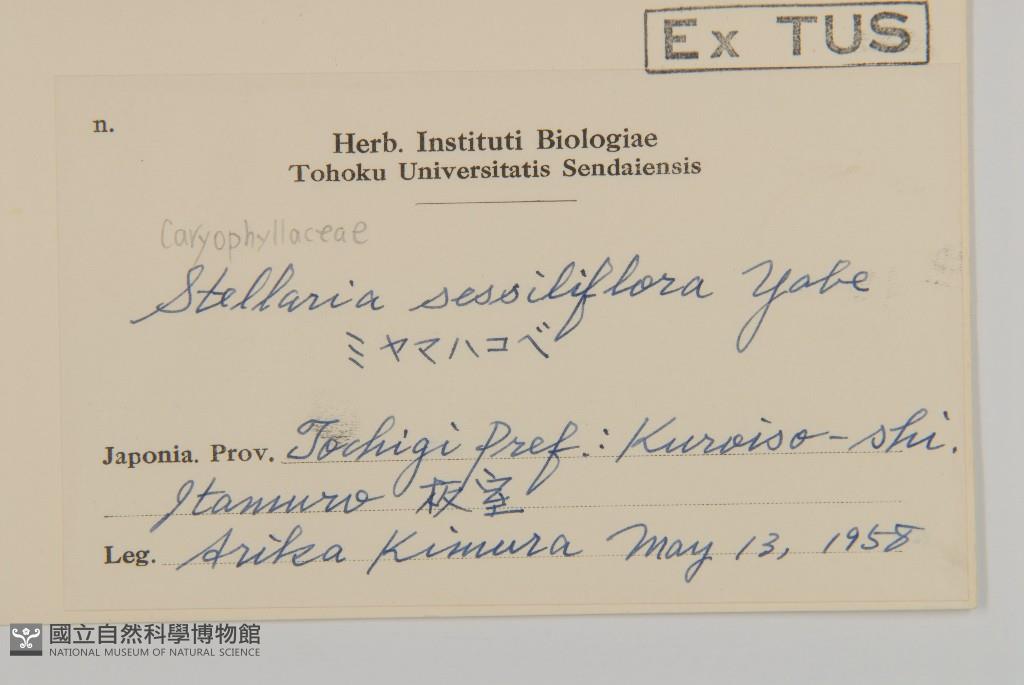 Ex TUS
n.
Herb. Instituti Biologiae
Tohoku Universitatis Sendaiensis
Caryophyllaceae
Stellaria sessiliflora Yabe
ミヤマハコベ
Japonia. Prov. Tochigi Pref.: Kuroiso-shi.
Itamuro 板室
Leg. Arika Kimura May 13, 1958
國立自然科學博物館
NATIONAL MUSEUM OF NATURAL SCIENCE